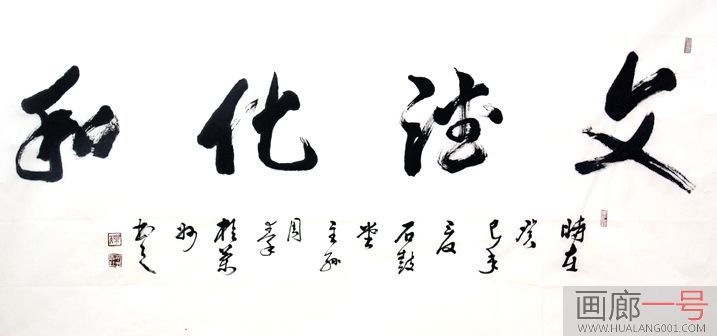 文德化和
時在癸巳年夏石鼓堂主孫周桂书之
画廊一号
WWW.HUALANG001.COM